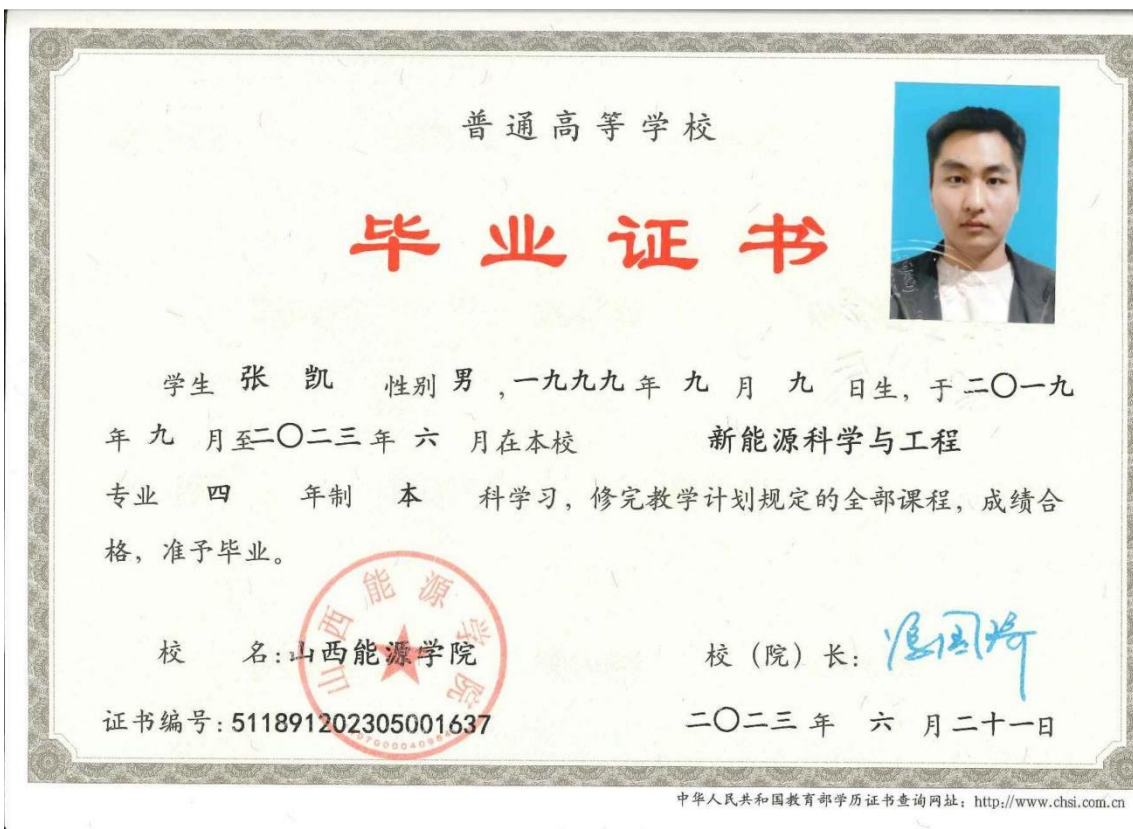 普通高等学校
毕业证书
学生 张 凯 性别 男 ,一九九九 年 九 月 九 日生，于 二〇一九
年 九 月至二〇二三 年 六 月在本校 新能源科学与工程
专业 四 年制 本 科学习，修完教学计划规定的全部课程，成绩合
格，准予毕业。
山西能源学院
校 名：山西能源学院
校（院）长：
证书编号：511891202305001637
二〇二三 年 六 月二十一日
中华人民共和国教育部学历证书查询网址：http://www.chsi.com.cn